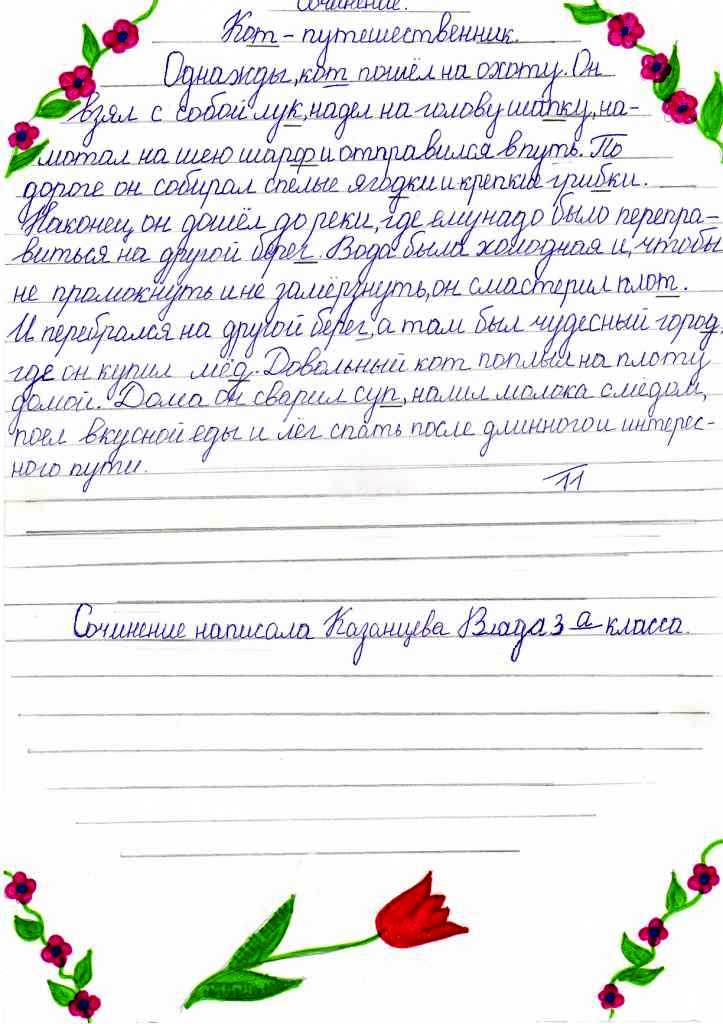 Сочинение.
Кот - путешественник.
Однажды, кот пошёл на охоту. Он
взял с собой лук, надел на голову шапку, на-
мотал на шею шарф и отправился в путь. По
дороге он собирал спелые ягодки и крепкие грибки.
Наконец, он дошёл до реки, где ему надо было перепра-
виться на другой берег. Вода была холодная и, чтобы
не промокнуть и не замёрзнуть, он смастерил плот.
И перебрался на другой берег, а там был чудесный город,
где он купил мёд. Довольный кот поплыл на плоту
домой. Дома он сварил суп, налил молока с мёдом,
поел вкусной еды и лёг спать после длинного и интерес-
ного пути.
11
Сочинение написала Казанцева Влада 3 а класса.